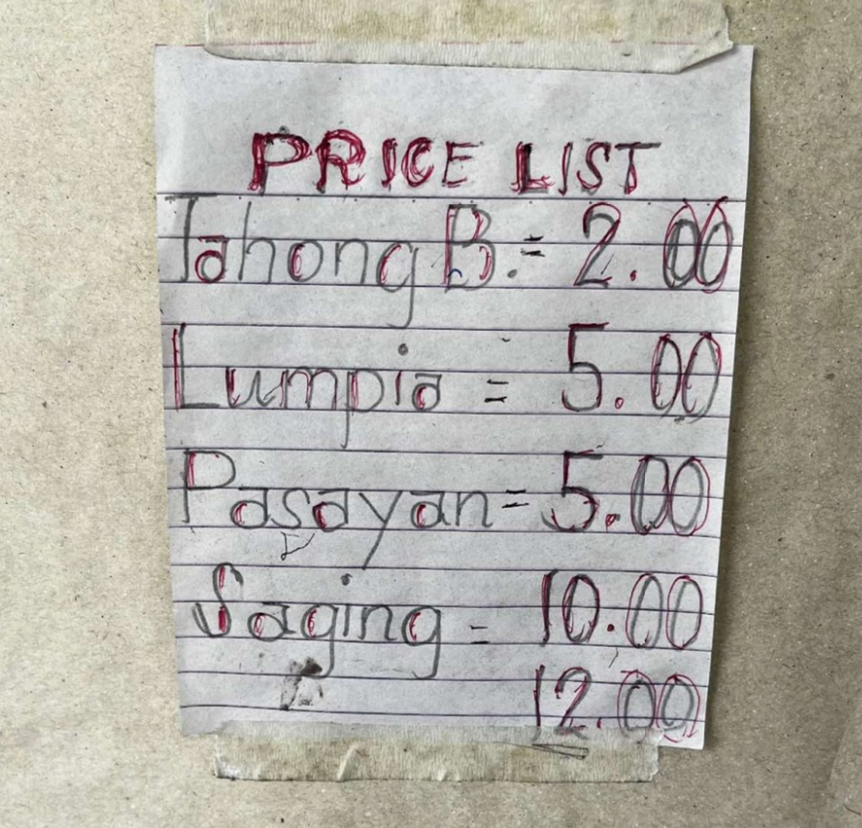 PRICE LIST
Tahong B. = 2.00
Lumpia = 5.00
Pasayan = 5.00
Saging = 10.00
12.00